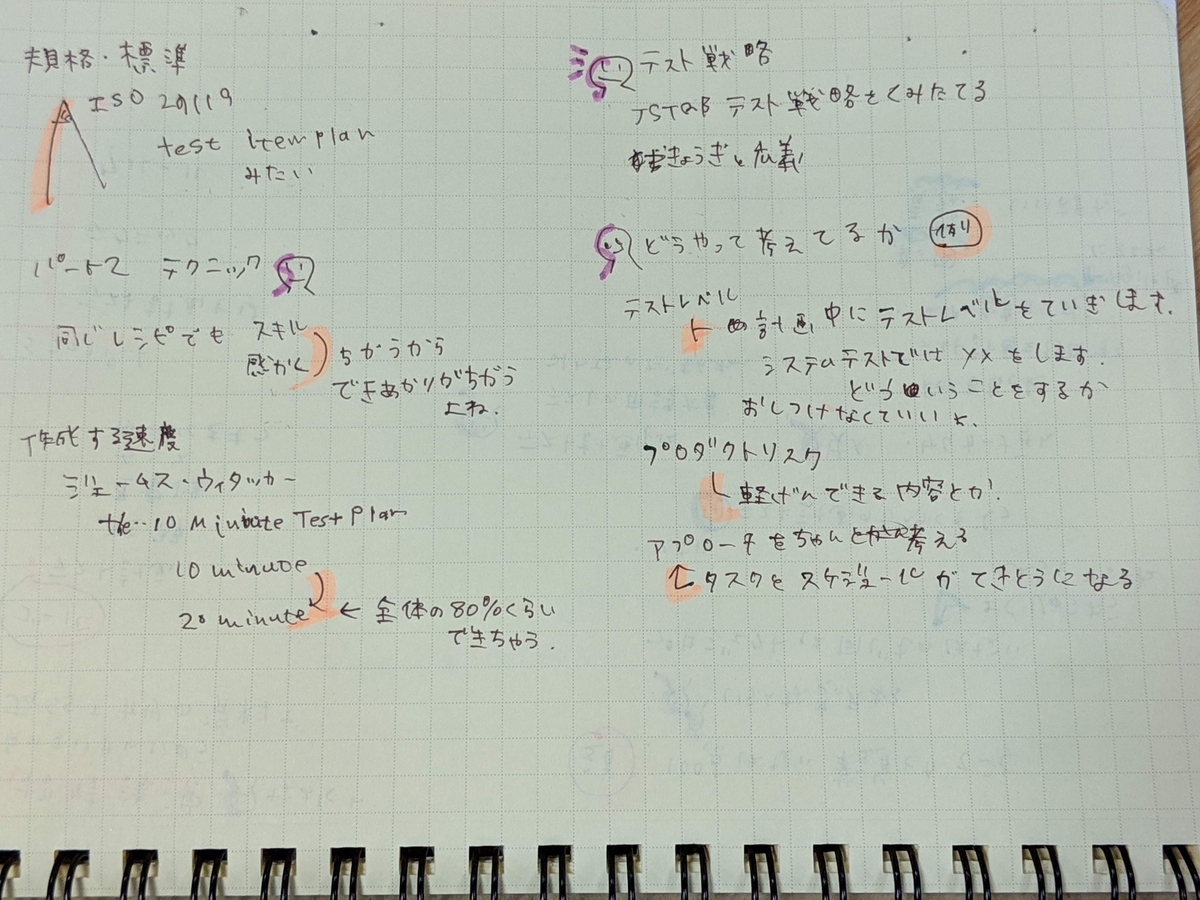 規格・標準
ISO 29119
test item plan
みたい
パート2 テクニック
同じレシピでも スキル
感かく
ちがうから
できあがりがちがう
よね.
作成する速度
ジェームス・ウィタッカー
the 10 Minute Test Plan
10 minute
20 minute ← 全体の80%くらい
できちゃう.
テスト戦略
JSTQB テスト戦略をくみたてる
きょうぎと広義
どうやって考えてるか
テストレベル
計画中にテストレベルをていぎします.
システムテストでは XXをします.
どういうことをするか
おしつけなくていいよ.
プロダクトリスク
軽げんできる内容とか.
アプローチをちゃんと考える
タスクとスケジュールがてきとうになる